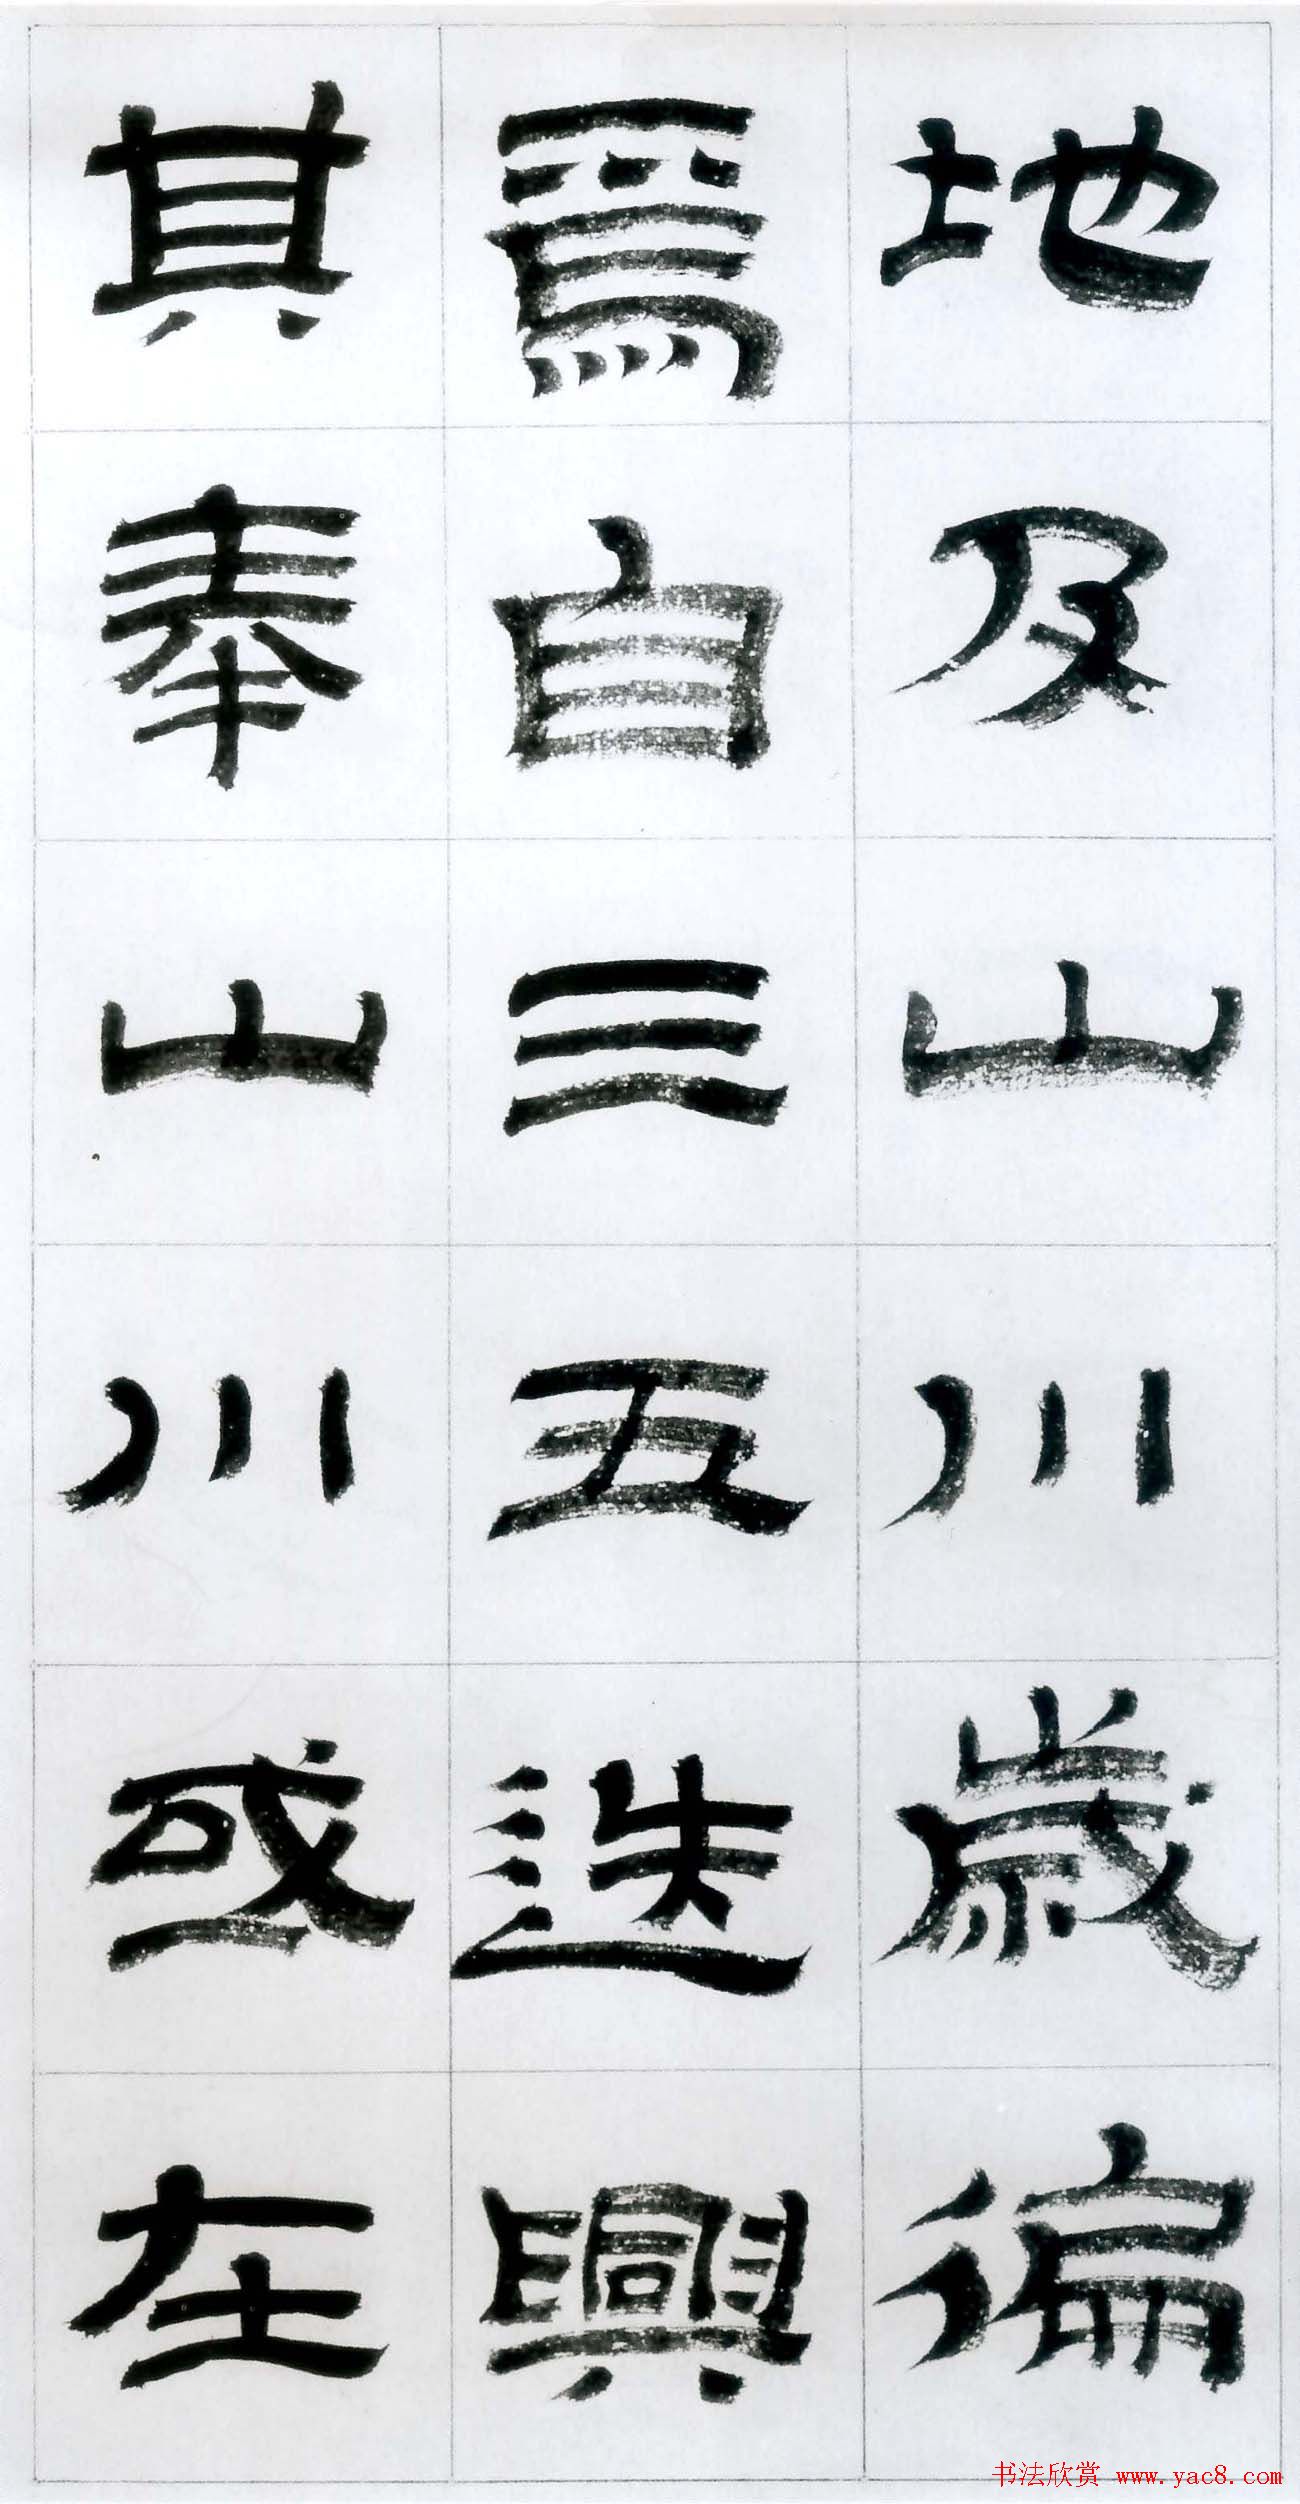 地及山川歲徧
焉自三五迭興
其奉山川或在
书法欣赏 www.yac8.com